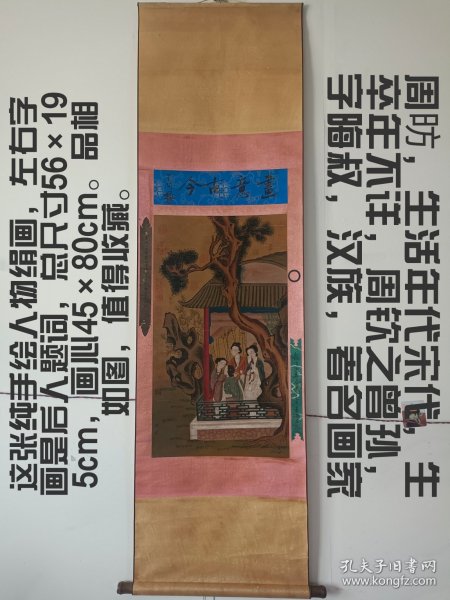 周昉，生活年代宋代，生
卒年不详，周钦之曾孙，
字晦叔，汉族，著名画家
畫意古今
这张纯手绘人物绢画，左右字
画是后人题词，总尺寸56×19
5cm，画心45×80cm。品相
如图，值得收藏。
孔夫子旧书网
www.kongfz.com